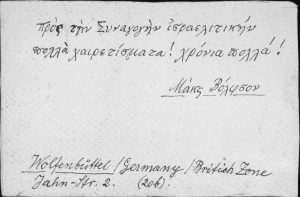 Πρὸς τὴν Συναγογὴν ἰσραελιτικὴν
πολλὰ χαιρετίσματα! χρόνια πολλά!!
Μάκς Βόλφσον
Wolfenbüttel / Germany / British Zone
Jahn-Str. 2. (20b).